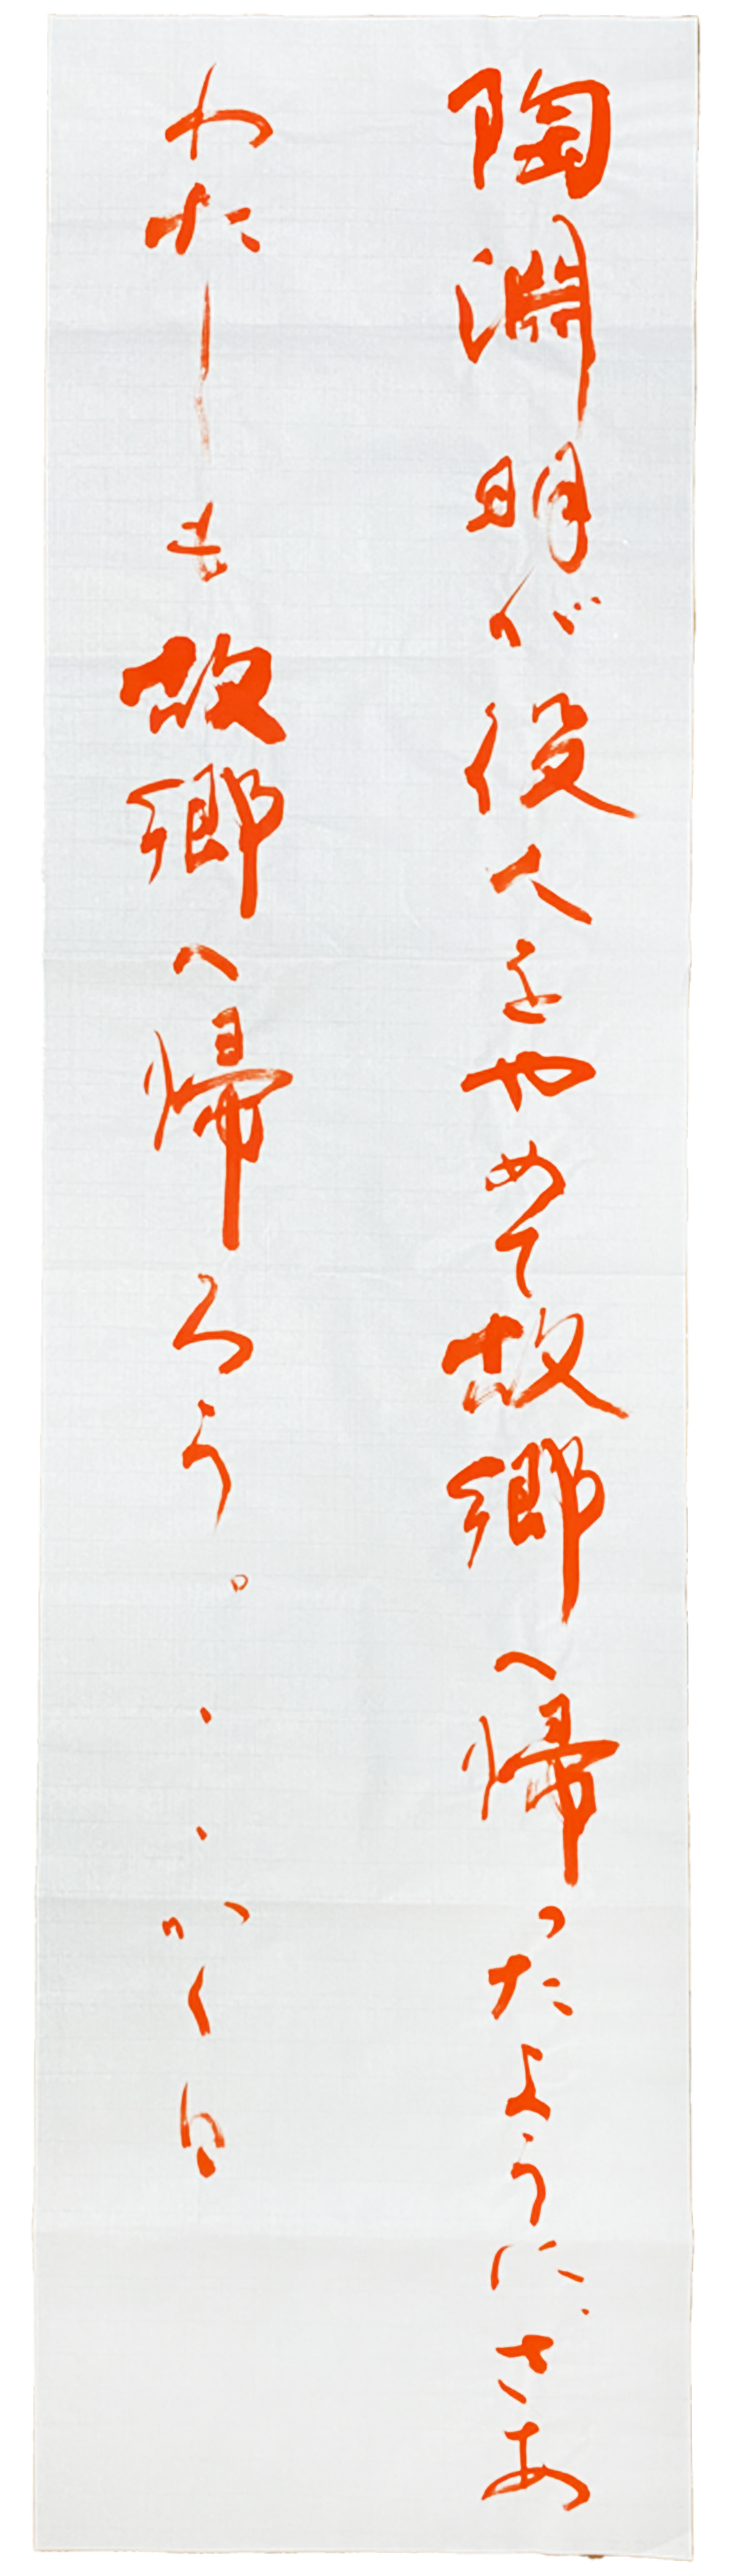 陶淵明が役人をやめて故郷へ帰ったように、さあ
わたしも故郷へ帰ろう。・・かく